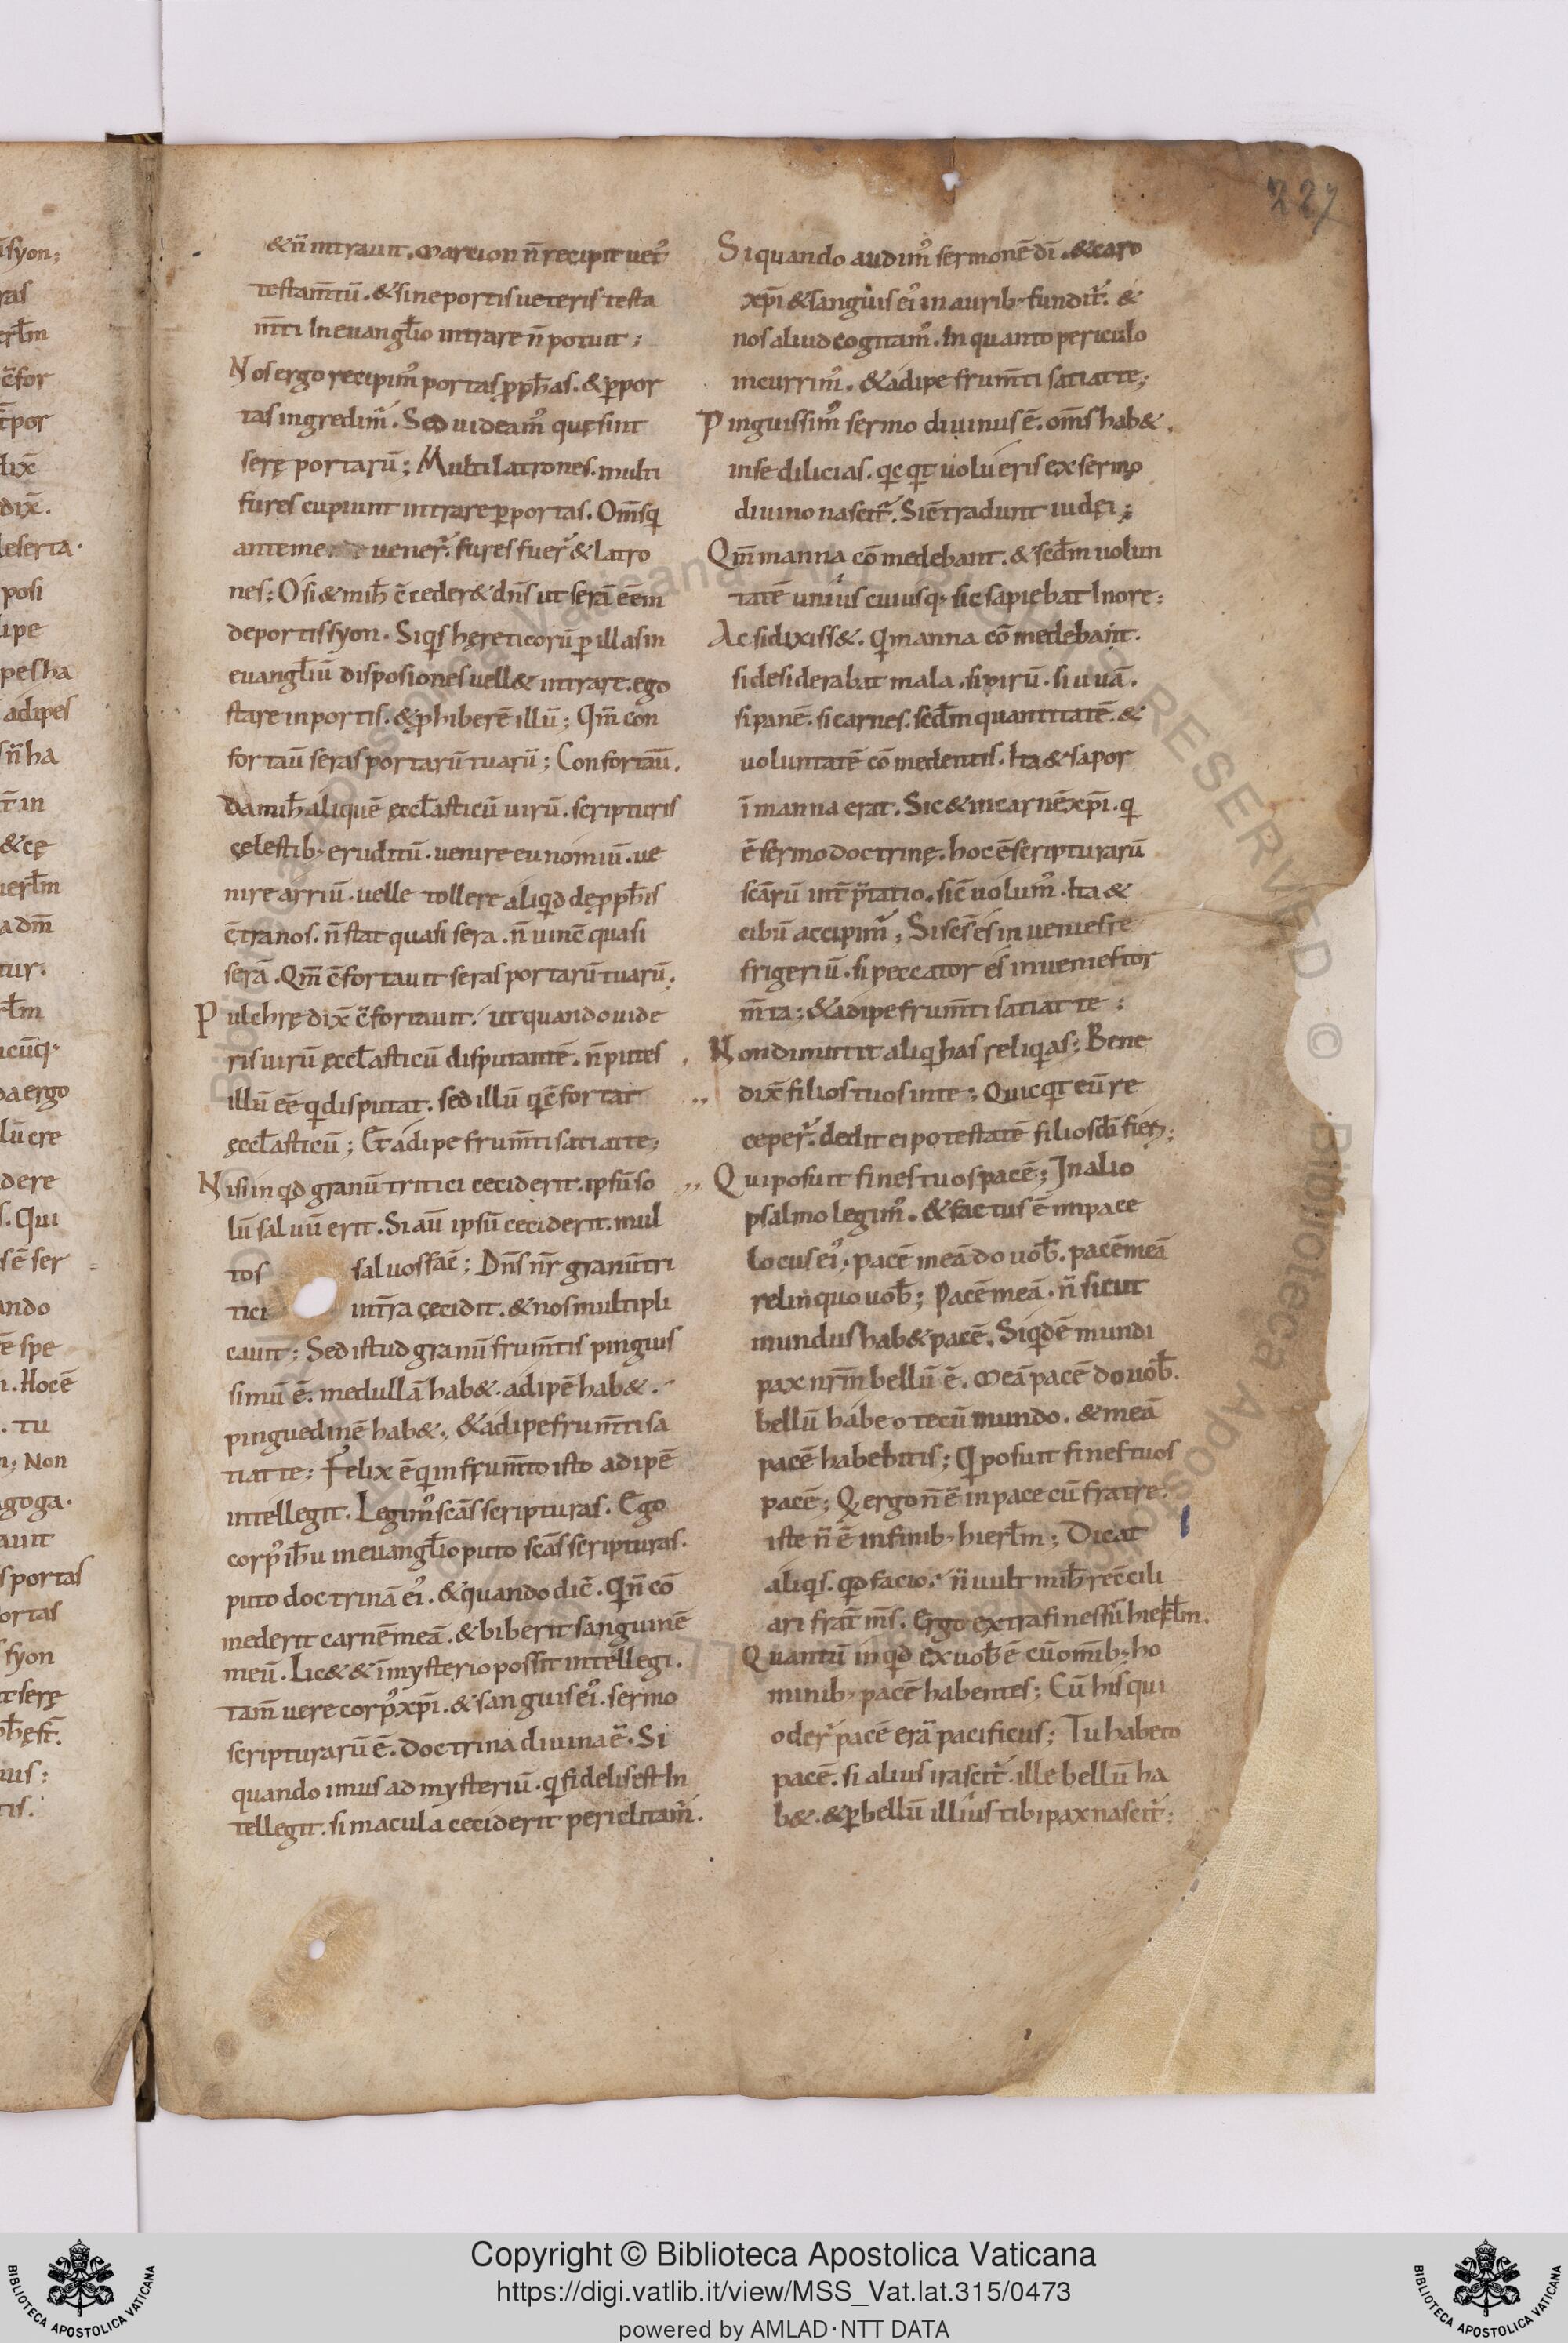 227
&n̄ intrauit. marcion n̄ recipit uet᷒
testam̄tū. & sine portis ueteris testa
m̄ti In euangl̄io intrare n̄ potuit;
Nos ergo recipim᷒ portas ꝓph̄as. & ꝑ por
tas ingredim̄. Sed uideam᷒ quę sint
serę portarū; Multi latrones. multi
fures cupiunt intrare ꝑ portas. Om̄s q̄
ante me uener̄. fures fuer̄ & latro
nes; O si & mih̄ c̄ceder& dn̄s ut serā eēm
de portis syon. Siqis hęreticorū ꝑ illas in
euangl̄iū disposiones uell& intrare. ego
stare in portis. & ꝓhiberē illū; Qm̄ con
fortau̅ seras portarū tuarū; Confortau̅.
Da mih̄ aliquē ęccl̄asticū uirū. scripturis
cęlestib; eruditū. uenire eunomiū. ue
nire arriū. uelle tollere aliqid dę ꝓph̄is
c̄tra nos. n̄ stat quasi sera. n̄ uinc̄ quasi
serā. Qm̄ c̄fortauit seras portarū tuarū.
Pulchrę dix̄ c̄fortauit. ut quando uide
ris uirū ęccl̄asticū disputantē. n̄ putes
illū eē q disputat. sed illū q c̄fortat
ęccl̄asticū; Et adipe frum̄ti satiat te;
Nisi inqd granū tritici ceciderit. ipsū so
lū saluū erit. Si au̅ ipsū ceciderit. mul
tos saluos fac̄; Dn̄s nr̄ granū tri
tici in tr̄a cęcidit. & nos multipli
cauit; Sed istud granū frum̄tis pinguis
simū ē. medullā hab&. adipē hab&.
pinguedinē hab&., & adipe frum̄ti sa
tiat te; Felix ē q in frum̄to isto adipē
intellegit. Legim᷒ scās scripturas. Ego
corp᷒ ih̄u in euangl̄io puto scās scripturas.
puto doctrinā ei᷒. & quando dic̄. Q n̄ cō
mederit carnē meā. & biberit sanguinē
meū. Lic& & ī mysterio possit intellegi.
tam̄ uere corp᷒ xp̄i. & sanguis ei᷒. sermo
scripturarū ē. doctrina diuina ē. Si
quando imus ad mysteriū. q fidelis est In
tellegit. si macula ceciderit periclitam̄.
Si quando audim᷒ sermonē dī. & caro
xp̄i & sanguis ei᷒ in aurib; fundit̄. &
nos aliud cogitam᷒. In quanto periculo
incurrim᷒. & adipe frum̄ti satiat te;
Pinguissim᷒ sermo diuinus ē. om̄s hab&.
in se dilicias. qc qt uolueris ex sermo
diuino nascit̄. Sic̄ tradunt iudęi;
Qm̄ manna cō medebant. & scd̄m uolun
tatē unius cuiusq; sic sapiebat In ore;
Ac si dixiss&. q manna cō medebant.
si desiderabat mala. si pirū. si uuā.
si panē. si carnes. scd̄m quantitatē. &
uoluntatē cō medentis. Ita & sapor
ī manna erat. Sic & in carnē xp̄i. q
ē sermo doctrinę. hoc ē scripturarū
scārū int̄ p̄tatio. sic̄ uolum᷒. Ita &
cibū accipim̄; Si scs̄ es inuenies re
frigeriū. si peccator es inuenies tor
m̄ta; & adipe frum̄ti satiat te;
Non dimittit aliq has reliq as; Bene
dix̄ filios tuos in te; Quicqt eū re
ceper̄. dedit ei potestatē filios dī fieri;
Qui posuit fines tuos pacē; In alio
psalmo legim᷒. & factus ē in pace
locus ei᷒; pacē meā do uob̄. pacē meā
relinquo uob̄; Pacē meā. n̄ sicut
mundus hab& pacē. Siqdē mundi
pax nrm̄ bellū ē. meā pacē do uob̄.
bellū habeo tecū mundo. & meā
pacē habebitis; Q posuit fines tuos
pacē; Q ergo n̄ ē in pace cū fratre.
iste n̄ ē in finib; hierl̄m; Dicat
aliqis. qd facio. n̄ uult mih̄ recc̄ili
ari frat̄ ms̄. Ergo extra fines sū hierl̄m.
Quantū inqd ex uob̄ ē cū omīb; ho
minib; pacē habentes; Cū his qui
oder̄ pacē erā pacificus; Tu habeto
pacē. si alius irascit̄. ille bellū ha
b&. & ꝑ bellū illius tibi pax nascit̄;
Copyright © Biblioteca Apostolica Vaticana
https://digi.vatlib.it/view/MSS_Vat.lat.315/0473
powered by AMLAD·NTT DATA
BIBLIOTECA APOSTOLICA VATICANA
BIBLIOTECA APOSTOLICA VATICANA